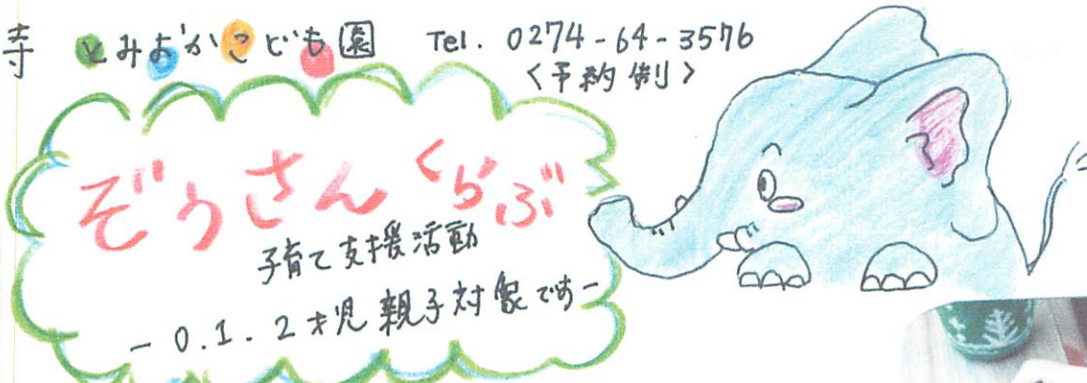 寺 とみおかこども園 Tel. 0274-64-3576
<予約制>
ぞうさんくらぶ
子育て支援活動
－0.1.2才児親子対象です－